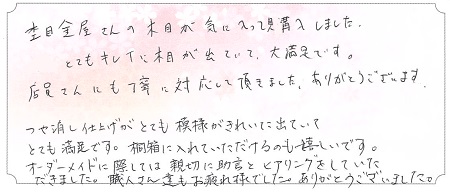 杢目金屋さんの木目が気に入って購入しました。
とてもキレイに木目が出ていて、大満足です。
店員さんにも丁寧に対応して頂きました。ありがとうございます。
つや消し仕上げがとても模様がきれいに出ていて
とても満足です。桐箱に入れていただけるのも嬉しいです。
オーダーメイドに際しては親切に助言とヒアリングをしていた
だきました。職人さん達もお疲れ様でした。ありがとうございました。